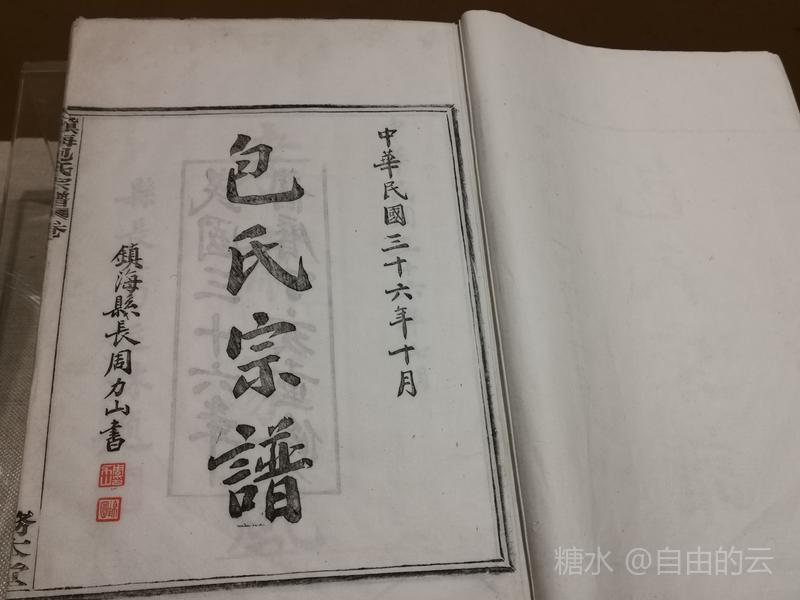 中華民國三十六年十月
包氏宗譜
鎮海縣長周力山書
鎮海包氏宗譜
糖水 @自由的云